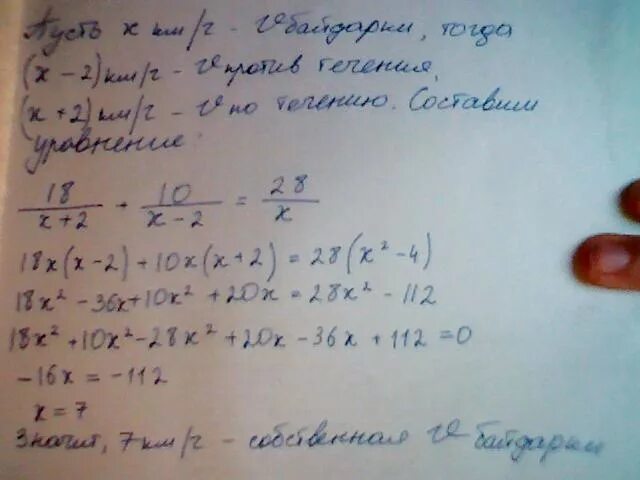 Пусть x км/ч - v байдарки, тогда
(x - 2) км/ч - v против течения,
(x + 2) км/ч - v по течению. Составим
уравнение:
18/(x+2) + 10/(x-2) = 28/x
18x(x-2)+10x(x+2) = 28(x² -4)
18x² -36x+10x² +20x = 28x² - 112
18x² +10x² -28x² +20x -36x +112 =0
-16x = -112
x = 7
Значит, 7 км/ч - собственная v байдарки